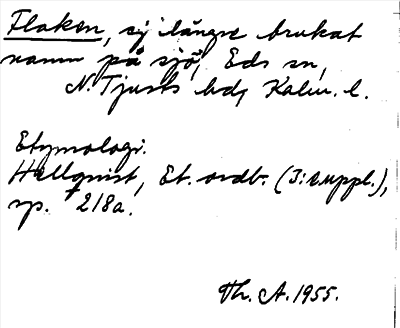 Flaken, ej längre brukat
namn på sjö, Eds sn,
N. Tjusts hd, Kalm. l.
Etymologi.
Hellquist, Et. ordb. (3: suppl.),
sp. 218a.
Th. A. 1955.